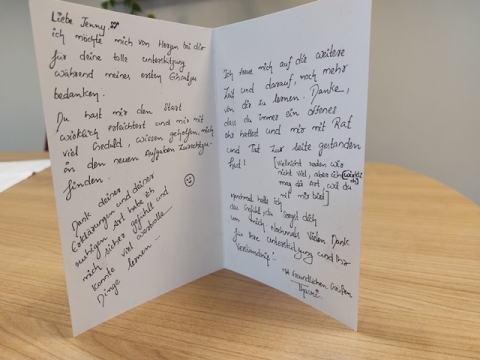 Liebe Jenny,
ich möchte mich von Herzen bei dir
für deine tolle unterstützung
während meines ersten
bedanken.
Du hast mir den Start
wirklich erleichtert und mir mit
viel Geduld, wissen geholfen, mich
in den neuen Aufgaben zurechtzu-
finden.
Dank deiner
Erklärungen und deiner
ruhigen Art habe ich
mich sicher gefühlt und
konnte viel
Dinge lernen
Ich freue mich auf die weitere
Zeit und darauf, noch mehr
von dir zu lernen. Danke,
dass du immer ein offenes
ohr hattest und mir mit Rat
und Tat zur seite gestanden
hast!
[vielleicht reden wir
nicht viel, aber ich
mag die Art, wie du
mit mir bist]
Manchmal
das Gefühl,
um mich Nochmals Vielen Dank
für Ihre Unterstützung und Ihr
Verständnis!
Mit freundlichen Grüßen